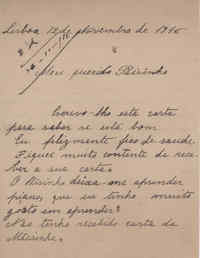 Lisboa 12 de Novembro de 1910
Meu querido Padrinho
Escrevo-lhe esta carta
para saber se está bom
Eu felizmente fico de saude.
Fiquei muito contente de rece
ber a sua carta.
O Padrinho deixa-me aprender
piano, que eu tenho muito
gosto em aprender?
Não tenho recebido carta da